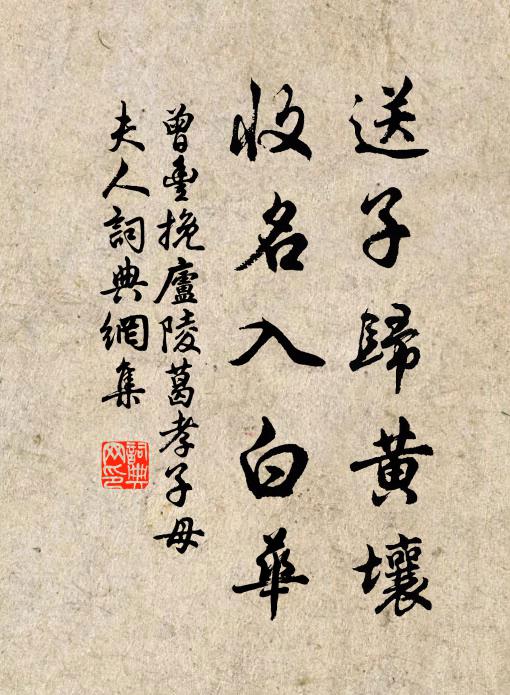 送子歸黃壤
收名入白華
曾豐挽廬陵葛孝子母
夫人詞典網集
詞典網印